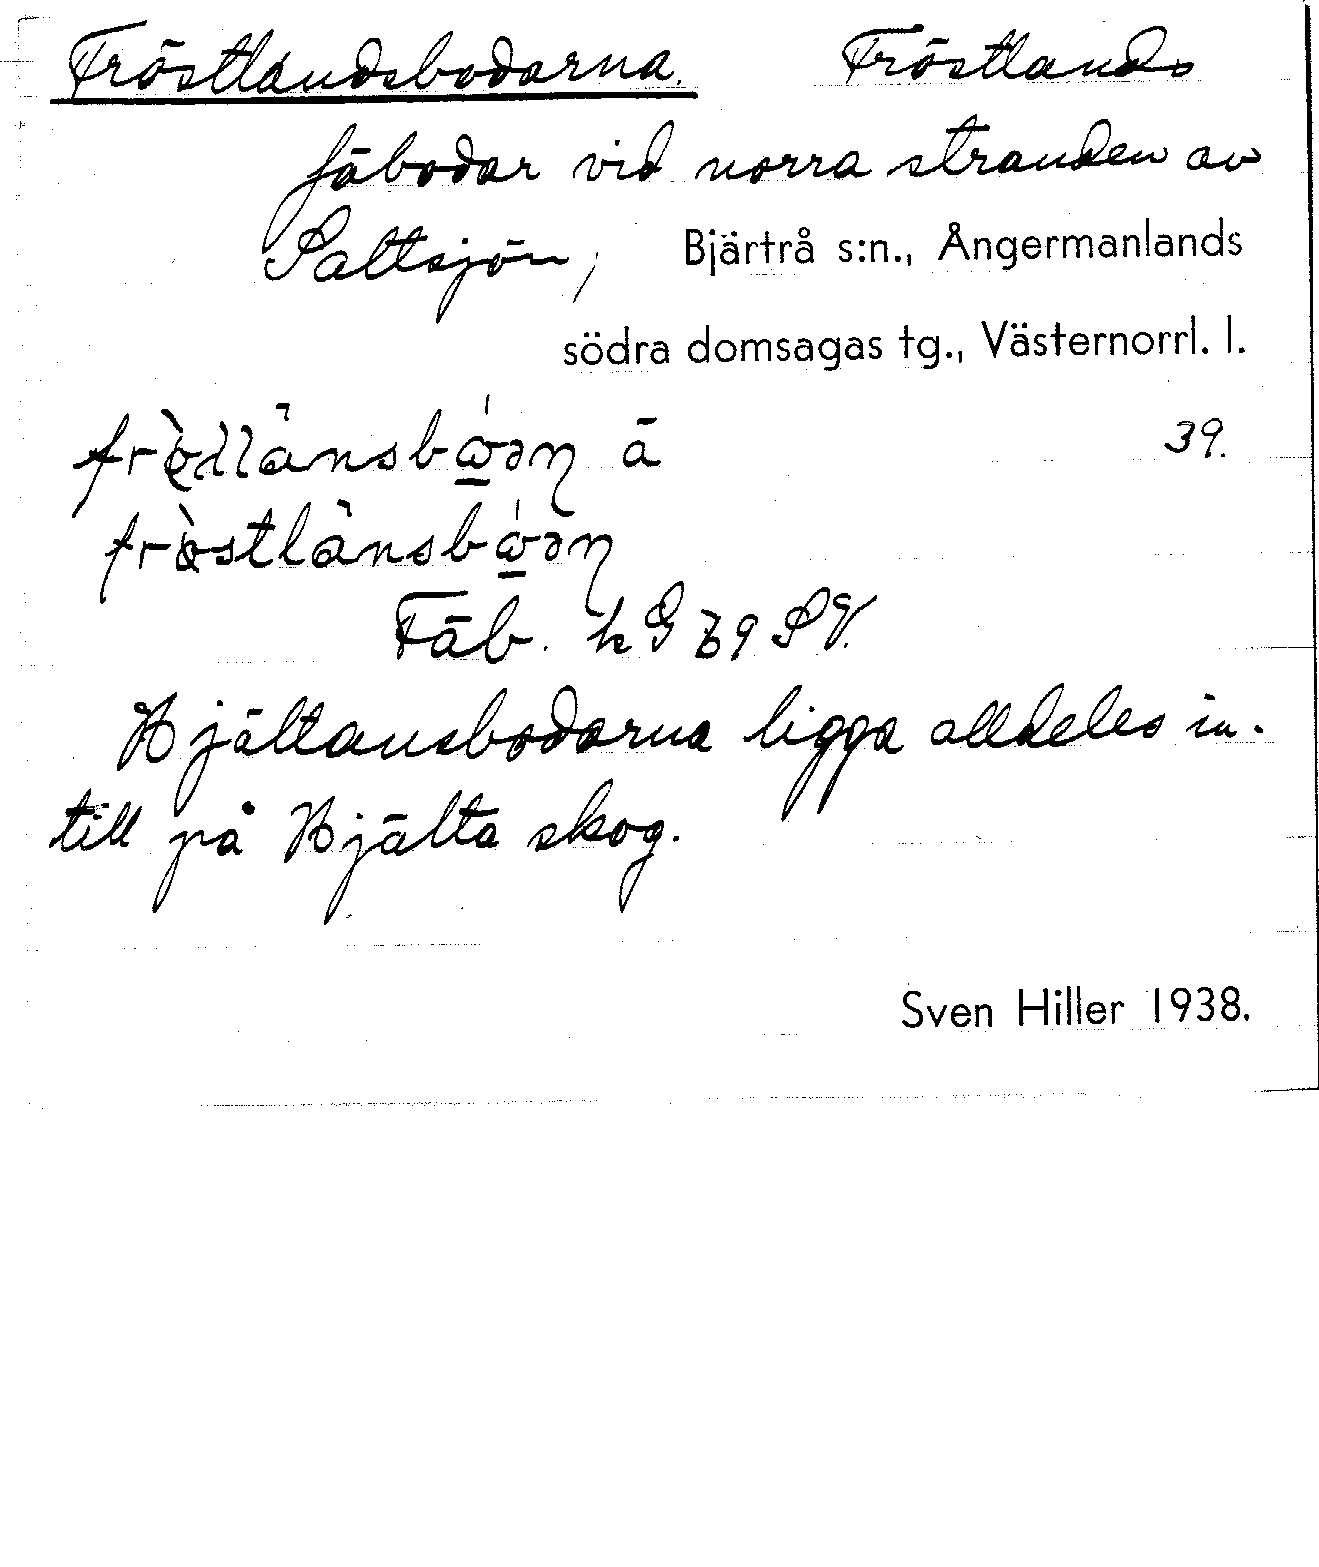 Fröstlandsbodarna. Fröstlands
fäbodar vid norra stranden av
Saltsjön, Bjärtrå s:n., Ångermanlands
södra domsagas tg., Västernorrl. l.
ä 39.
Fäb. k G 79 SV.
Hjältansbodarna ligga alldeles in-
till på Hjälta skog.
Sven Hiller 1938.